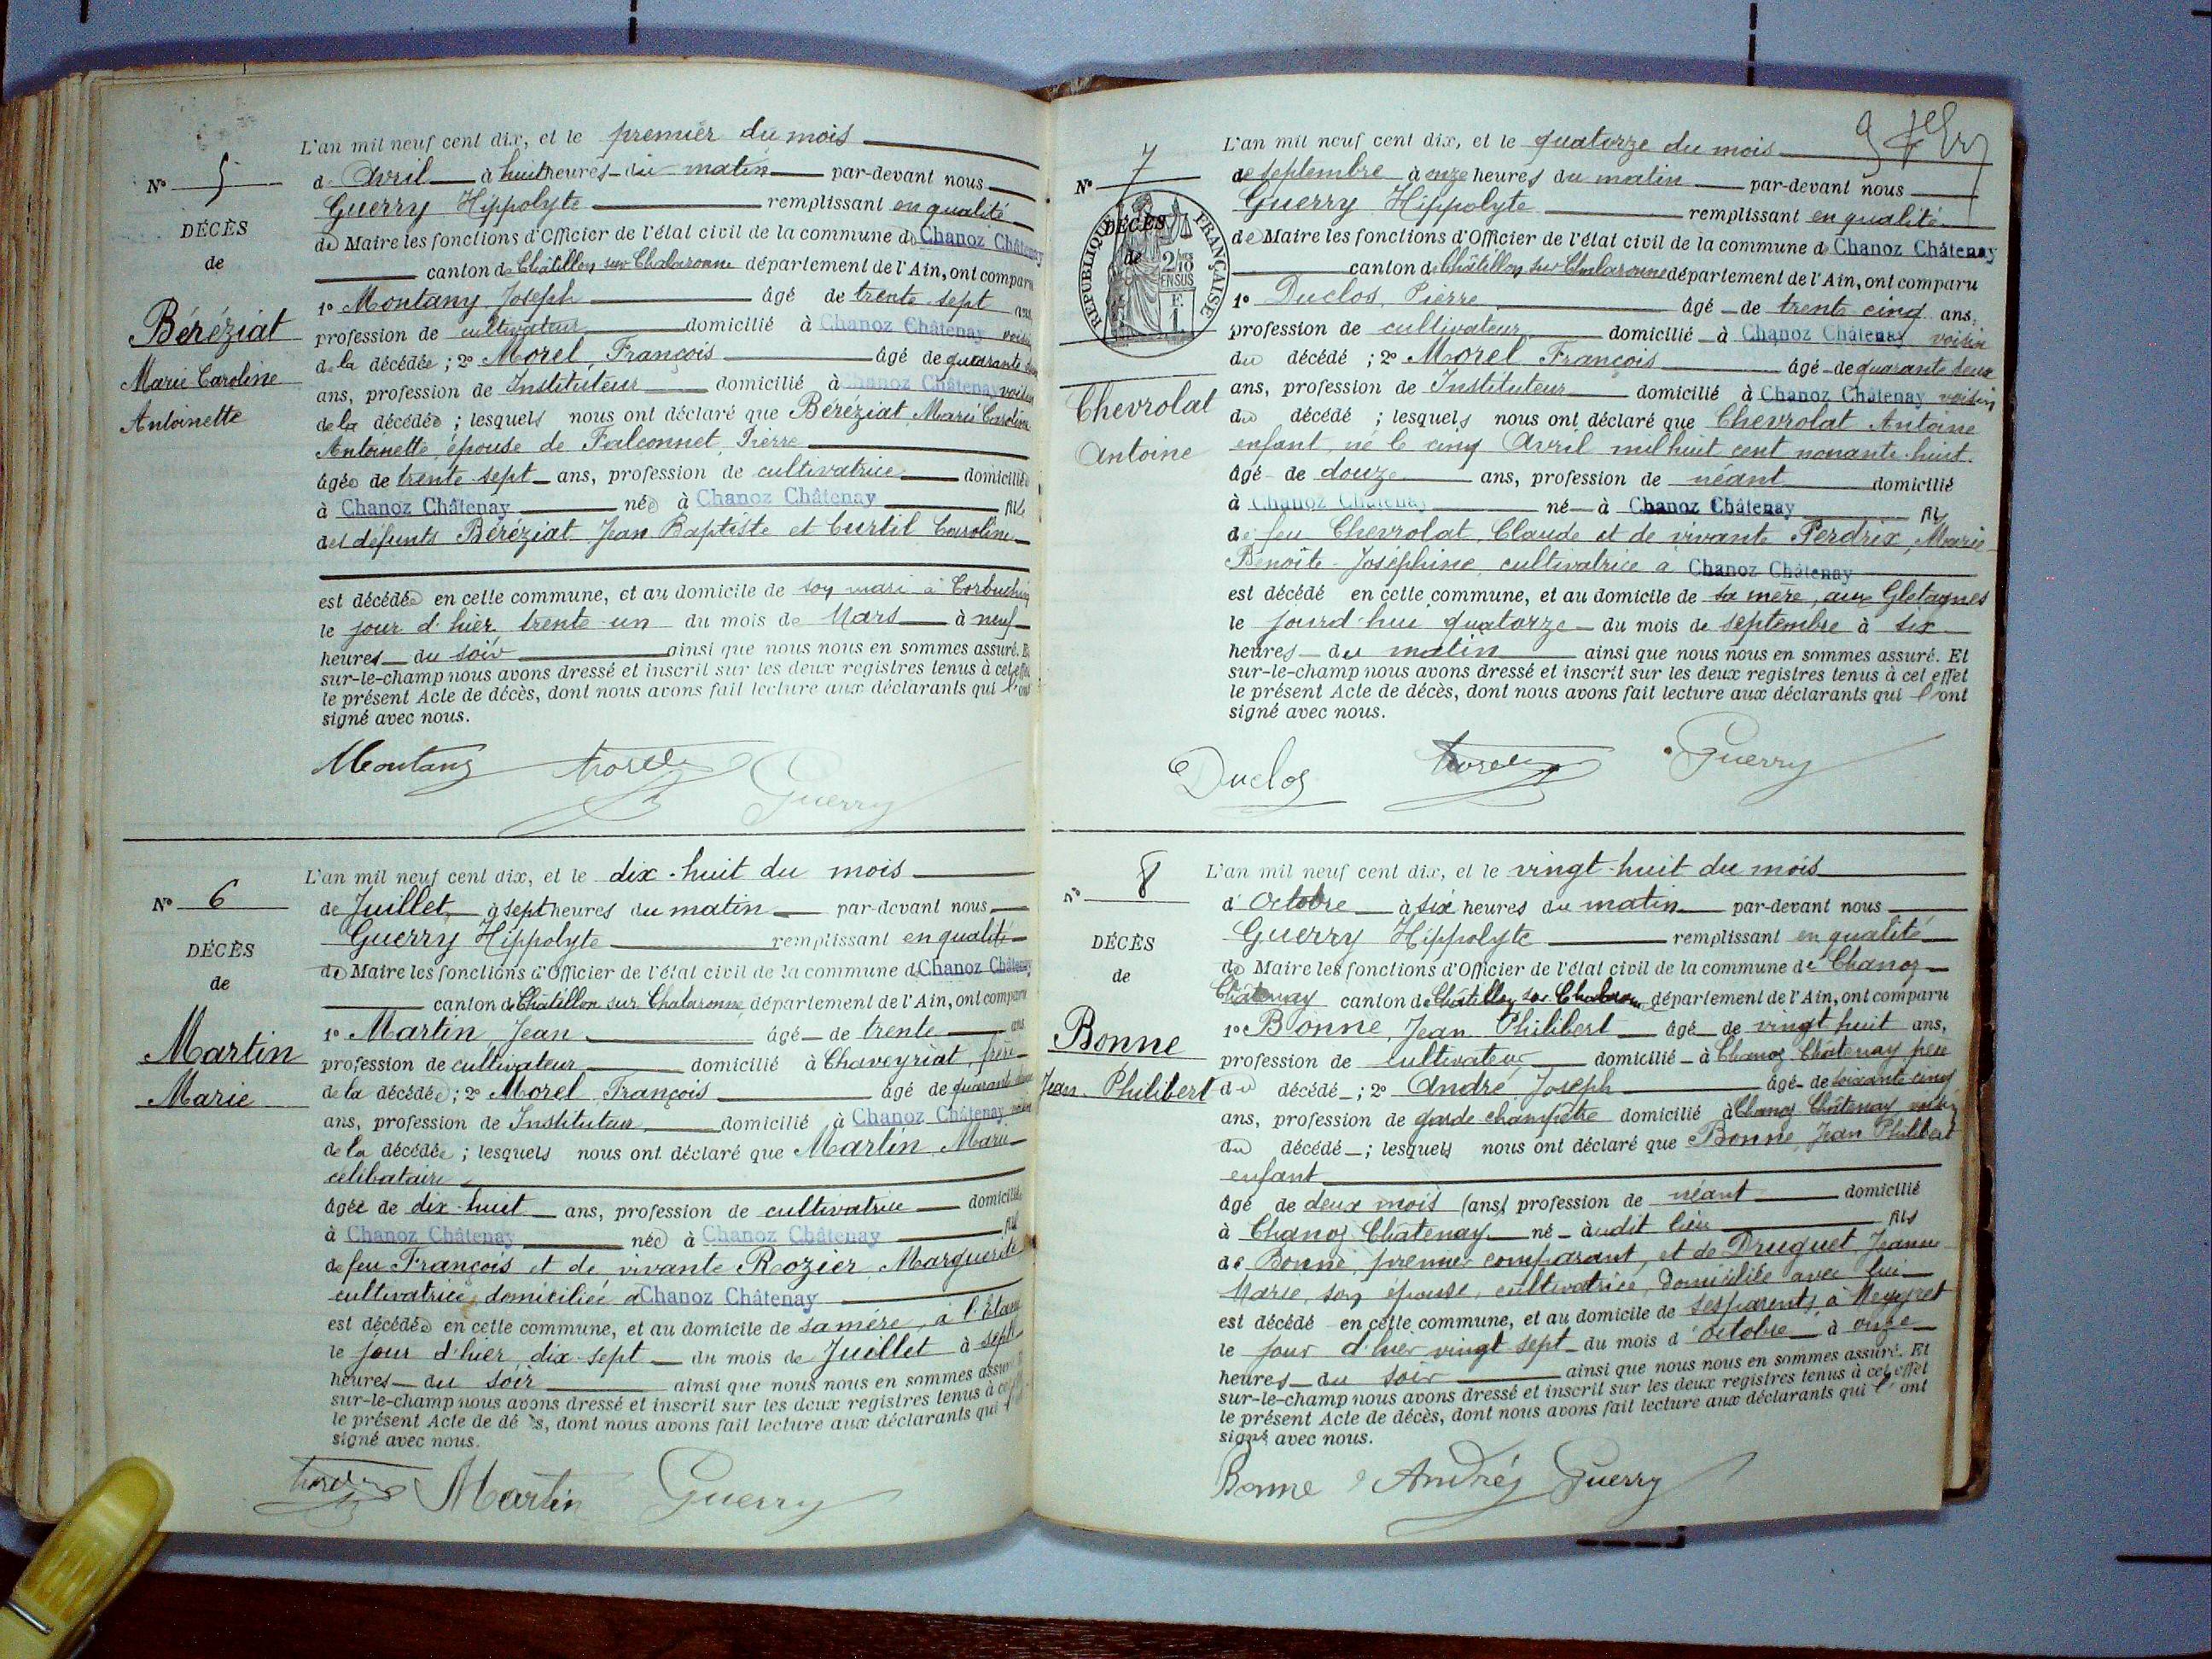 N° 5
DÉCÈS
de
Béréziat
Marie Caroline
Antoinette
L'an mil neuf cent dix, et le premier du mois
d' Avril à huit heures du matin par-devant nous
Guerry Hippolyte remplissant en qualité
de Maire les fonctions d'Officier de l'état civil de la commune de Chanoz Châtenay
canton de Châtillon sur Chalaronne département de l'Ain, ont comparu
1° Montany Joseph âgé de trente sept ans
profession de cultivateur domicilié à Chanoz Châtenay voisin
de la décédée ; 2° Morel François âgé de quarante
ans, profession de Instituteur domicilié à Chanoz Châtenay voisin
de la décédée ; lesquels nous ont déclaré que Béréziat Marie Caroline
Antoinette, épouse de Falconnet Pierre
âgée de trente sept ans, profession de cultivatrice domiciliée
à Chanoz Châtenay née à Chanoz Châtenay fille
des défunts Béréziat Jean Baptiste et Curtil Caroline
est décédée en cette commune, et au domicile de son mari à
le jour d'hier trente un du mois de Mars à neuf
heures du soir ainsi que nous nous en sommes assuré. Et
sur-le-champ nous avons dressé et inscrit sur les deux registres tenus à cet effet
le présent Acte de décès, dont nous avons fait lecture aux déclarants qui l'ont
signé avec nous.
Montany Morel Guerry
N° 6
DÉCÈS
de
Martin
Marie
L'an mil neuf cent dix, et le dix-huit du mois
de Juillet à sept heures du matin par-devant nous
Guerry Hippolyte remplissant en qualité
de Maire les fonctions d'Officier de l'état civil de la commune de Chanoz Châtenay
canton de Chatillon sur Chalaronne, département de l'Ain, ont comparu
1° Martin Jean âgé de trente ans
profession de cultivateur domicilié à Chaveyriat, frère
de la décédée ; 2° Morel François âgé de quarante deux
ans, profession de Instituteur domicilié à Chanoz Châtenay voisin
de la décédée ; lesquels nous ont déclaré que Martin Marie
célibataire
âgée de dix-huit ans, profession de cultivatrice domiciliée
à Chanoz Châtenay née à Chanoz Châtenay fille
de feu François et de vivante Rozier Marguerite
cultivatrice domiciliée à Chanoz Châtenay
est décédée en cette commune, et au domicile de sa mère, à l'Etang
le jour d'hier, dix-sept du mois de Juillet à sept
heures du soir ainsi que nous nous en sommes assuré
sur-le-champ nous avons dressé et inscrit sur les deux registres tenus à cet
le présent Acte de dé s, dont nous avons fait lecture aux déclarants qui
signé avec nous.
Morel Martin Guerry
N° 7
RÉPUBLIQUE FRANÇAISE
2/10 EN SUS
F. 1.
DÉCÈS
de
Chevrolat
Antoine
L'an mil neuf cent dix, et le quatorze du mois
de septembre à onze heures du matin par-devant nous
Guerry Hippolyte remplissant en qualité
de Maire les fonctions d'Officier de l'état civil de la commune de Chanoz Châtenay
canton de Châtillon sur Chalaronne département de l'Ain, ont comparu
1° Duclos, Pierre âgé de trente cinq ans,
profession de cultivateur domicilié à Chanoz Châtenay voisin
du décédé ; 2° Morel François âgé de quarante deux
ans, profession de Instituteur domicilié à Chanoz Châtenay voisin
du décédé ; lesquels nous ont déclaré que Chevrolat Antoine
enfant, né le cinq Avril mil huit cent nonante-huit.
âgé de douze ans, profession de néant domicilié
à Chanoz Châtenay né à Chanoz Châtenay fils
de feu Chevrolat, Claude et de vivante Perdrix, Marie
Benoîte Joséphine, cultivatrice à Chanoz Châtenay
est décédé en cette commune, et au domicile de sa mère, aux Gletagnes
le jourd'hui quatorze du mois de septembre à six
heures du matin ainsi que nous nous en sommes assuré. Et
sur-le-champ nous avons dressé et inscrit sur les deux registres tenus à cet effet
le présent Acte de décès, dont nous avons fait lecture aux déclarants qui l'ont
signé avec nous.
Duclos Morel Guerry
N° 8
DÉCÈS
de
Bonne
Jean Philibert
L'an mil neuf cent dix, et le vingt-huit du mois
d'Octobre à six heures du matin par-devant nous
Guerry Hippolyte remplissant en qualité
de Maire les fonctions d'Officier de l'état civil de la commune de Chanoz
Châtenay canton de Châtillon sur Chalaronne département de l'Ain, ont comparu
1° Bonne, Jean Philibert âgé de vingt huit ans,
profession de cultivateur domicilié à Chanoz Châtenay père
du décédé ; 2° André Joseph âgé de soixante cinq
ans, profession de garde-champêtre domicilié à Chanoz Châtenay voisin
du décédé ; lesquels nous ont déclaré que Bonne, Jean Philibert
enfant
âgé de deux mois (ans) profession de néant domicilié
à Chanoz Châtenay né audit lieu fils
de Bonne, premier comparant, et de Druguet Jeanne
Marie, son épouse, cultivatrice, domiciliée avec lui
est décédé en cette commune, et au domicile de ses parents, à
le jour d'hier vingt sept du mois d'octobre à onze
heures du soir ainsi que nous nous en sommes assuré. Et
sur-le-champ nous avons dressé et inscrit sur les deux registres tenus à cet effet
le présent Acte de décès, dont nous avons fait lecture aux déclarants qui l'ont
signé avec nous.
Bonne André Guerry